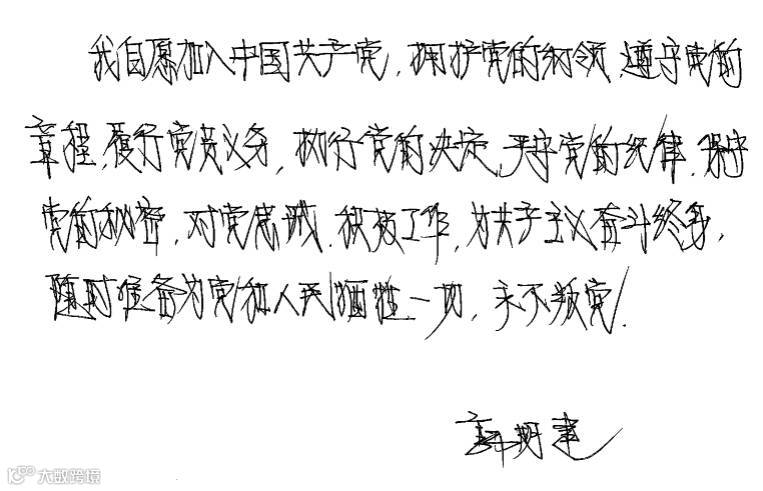 我自愿加入中国共产党,拥护党的纲领,遵守党的
章程,履行党员义务,执行党的决定,严守党的纪律,保守
党的秘密,对党忠诚,积极工作,为共产主义奋斗终身,
随时准备为党和人民牺牲一切,永不叛党.
大数跨境